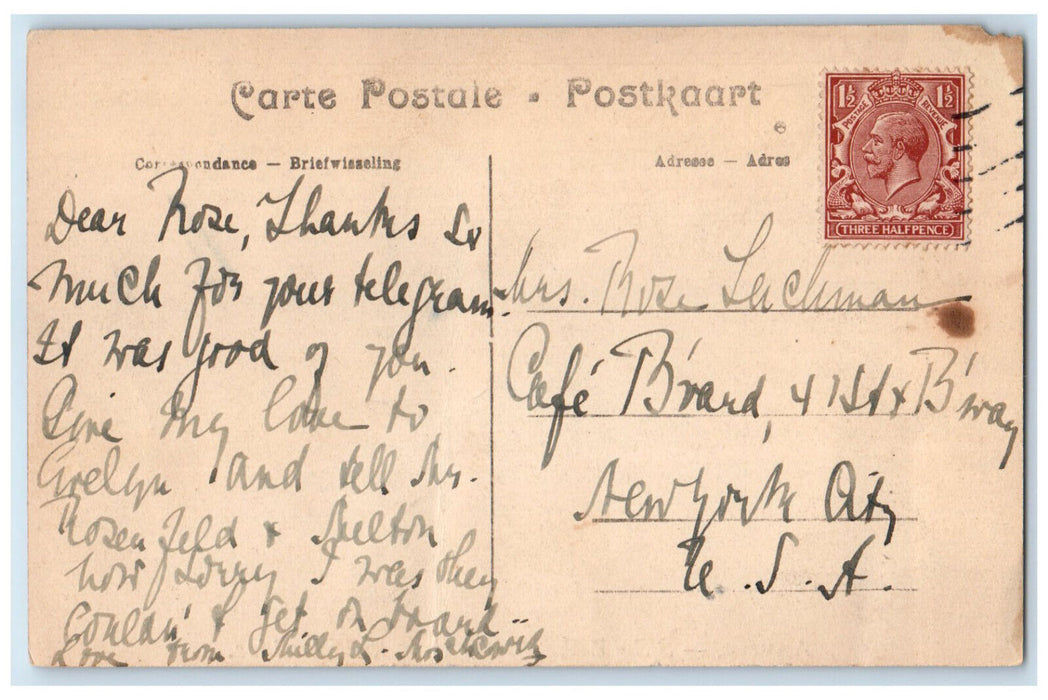 Carte Postale - Postkaart
Correspondance — Briefwisseling
Adresse — Adres
1½ 1½
POSTAGE REVENUE
THREE HALFPENCE
Dear Rose, Thanks so
much for your telegram.
It was good of you.
Give my love to
Evelyn and tell Mrs.
Rosenfeld &
how sorry I was they
couldn't get on board.
Love from
Mrs. Rose Lachman
Café B'vard, 41St & B'way
New York City
U.S.A.